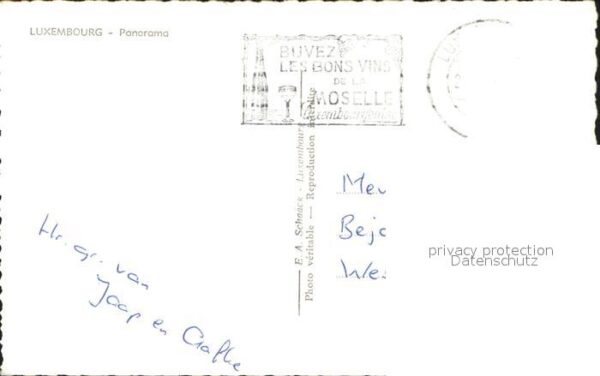 LUXEMBOURG - Panorama
BUVEZ
LES BONS VINS
DE LA
MOSELLE
luxembourgeoise
E. A. Schaack - Luxembourg
Photo véritable — Reproduction interdite
Mev
Bej
We
privacy protection
Datenschutz
Hr. gr. van
Jaap en